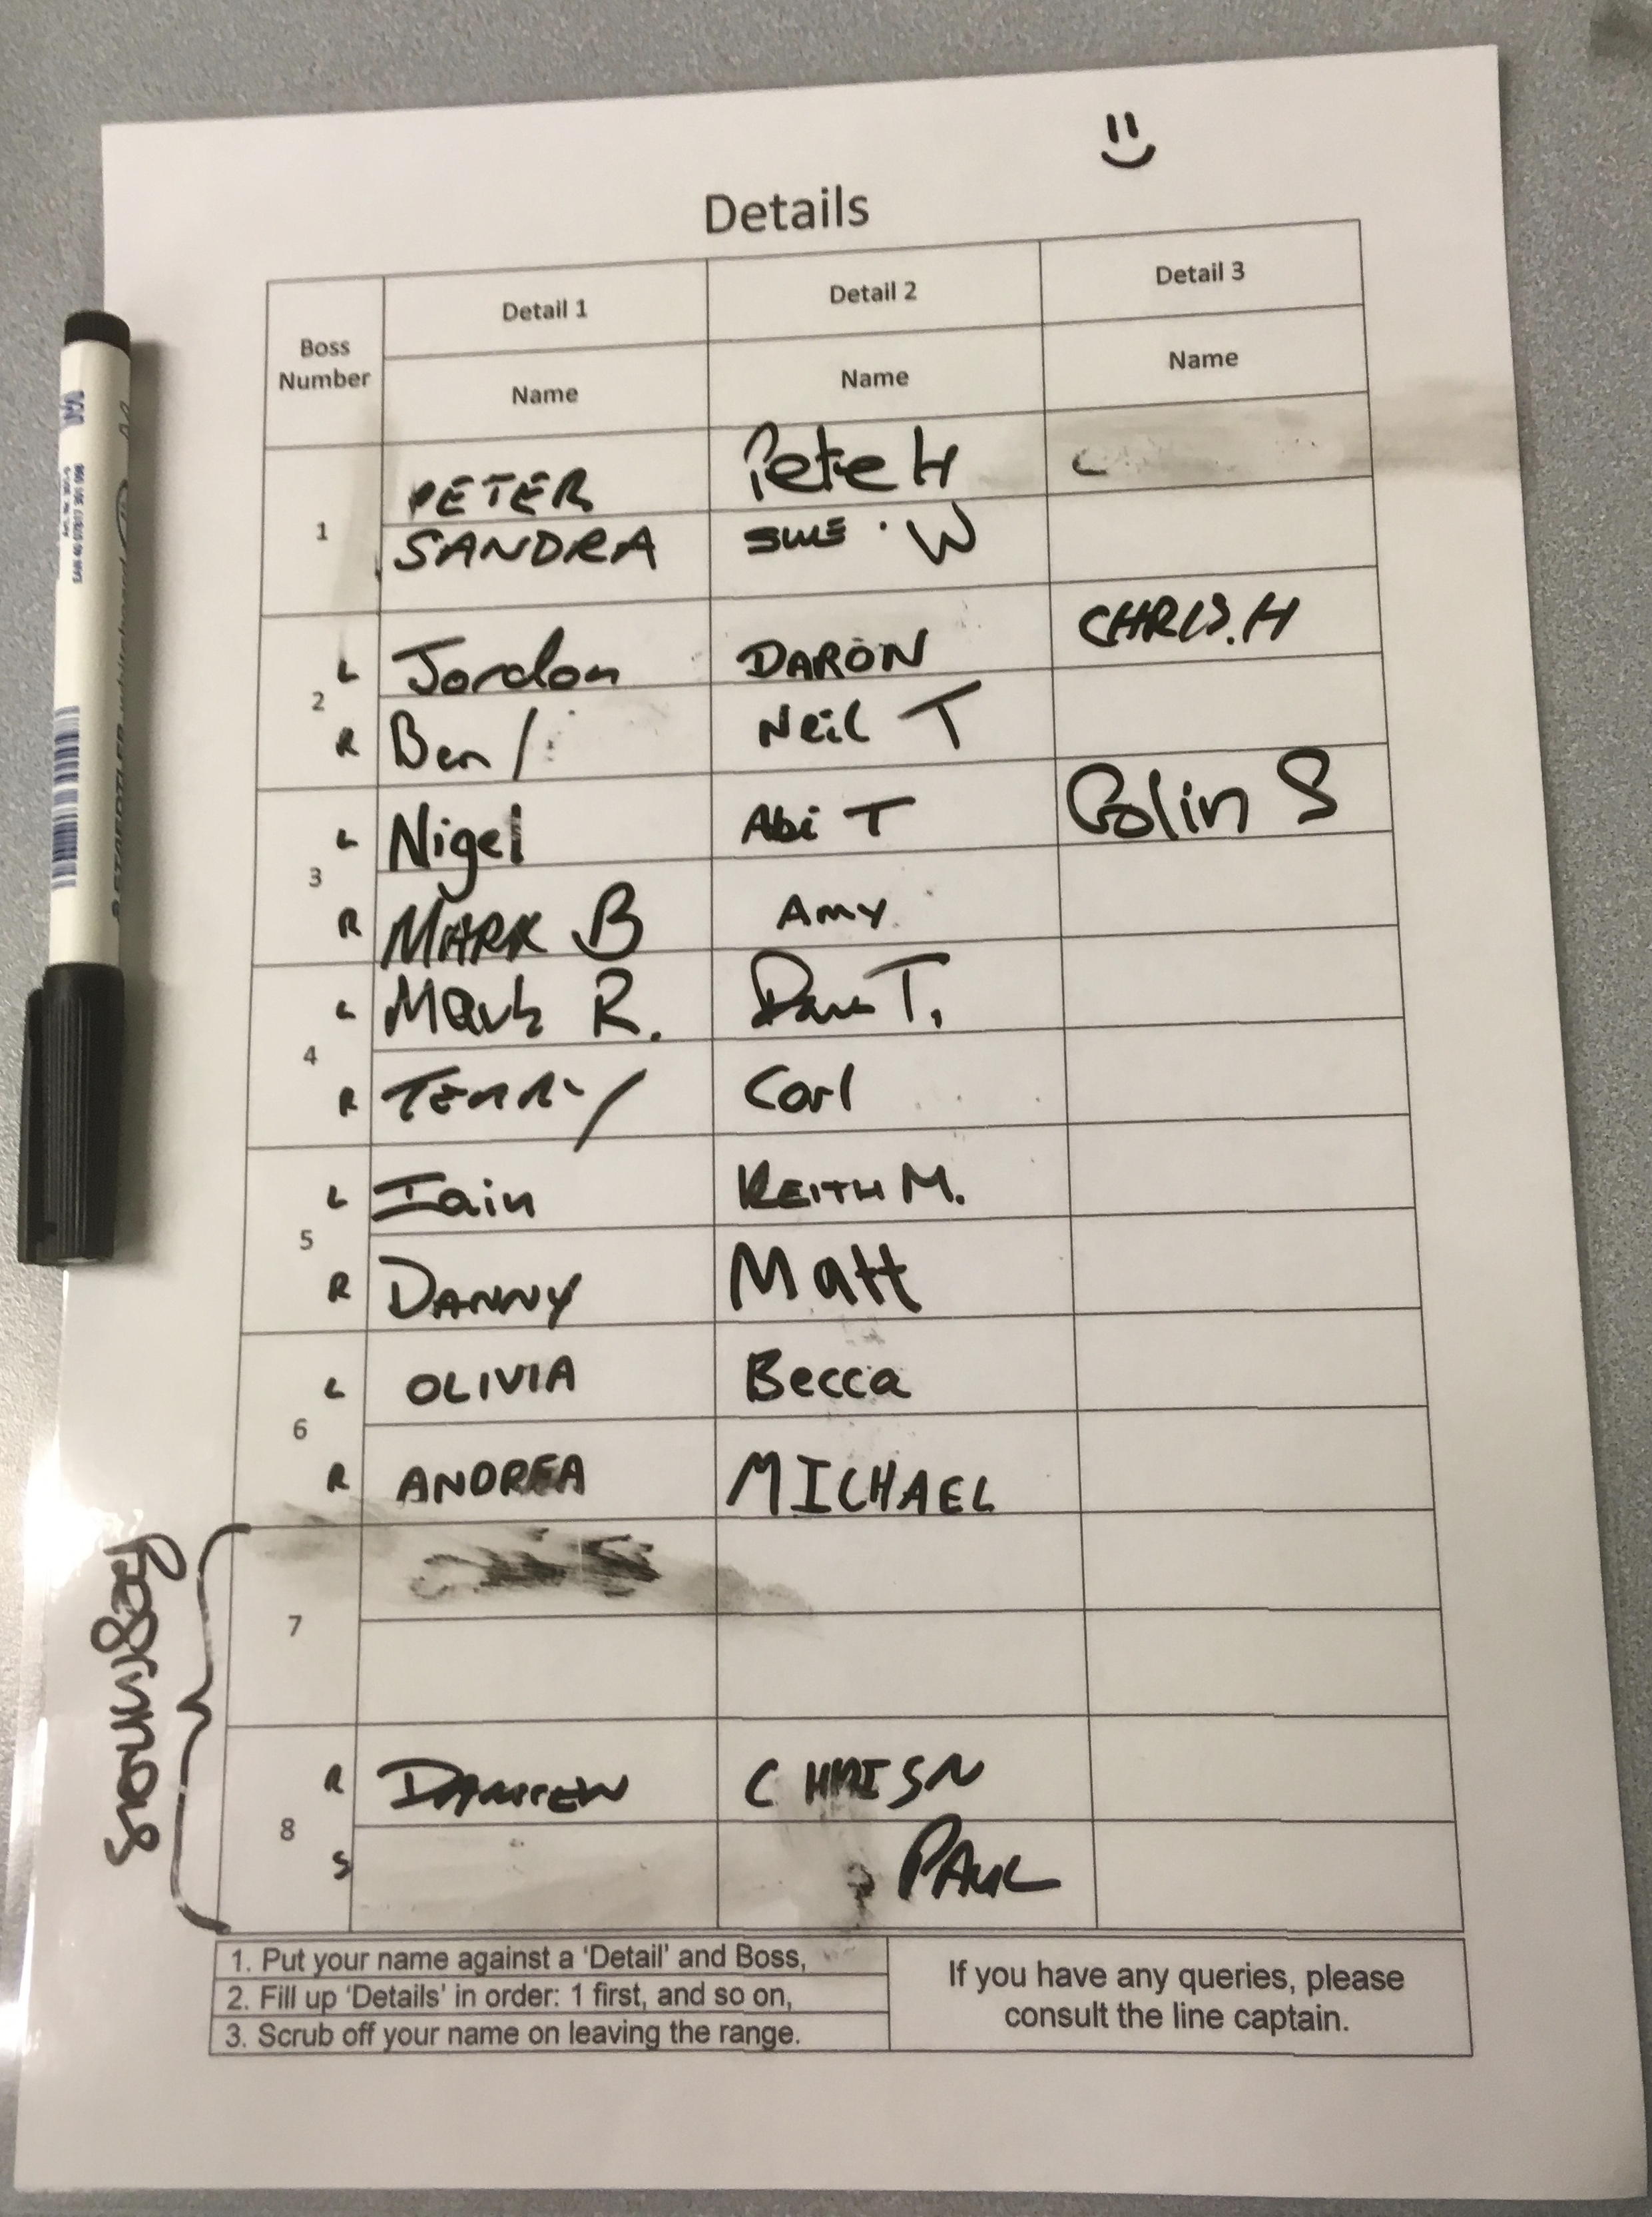 Details
Boss Number Detail 1 Detail 2 Detail 3
Name Name Name
1 PETER Pete H
SANDRA SUE · W
2 L Jordan DARON CHRIS.H
R Ben Neil T
3 L Nigel Abi T Colin S
R MARK B Amy
4 L Mark R. Dave T.
R TERRY Carl
5 L Iain KEITH M.
R DANNY Matt
6 L OLIVIA Becca
R ANDREA MICHAEL
Beginners
7
8 R DARREN CHRIS N
S PAUL
1. Put your name against a 'Detail' and Boss,
2. Fill up 'Details' in order: 1 first, and so on,
3. Scrub off your name on leaving the range.
If you have any queries, please
consult the line captain.
STAEDTLER